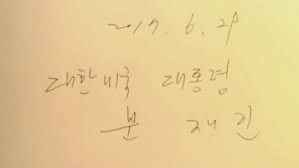 2017. 6. 28
대한민국 대통령
문 재 인